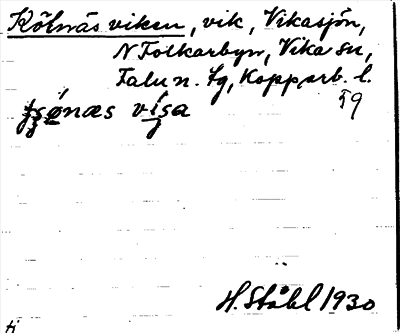 Kölnäs viken, vik, Vikasjön,
N Folkarbyn, Vika sn,
Falu n. tg, Kopparb. l.
59
H. Ståhl 1930
ti